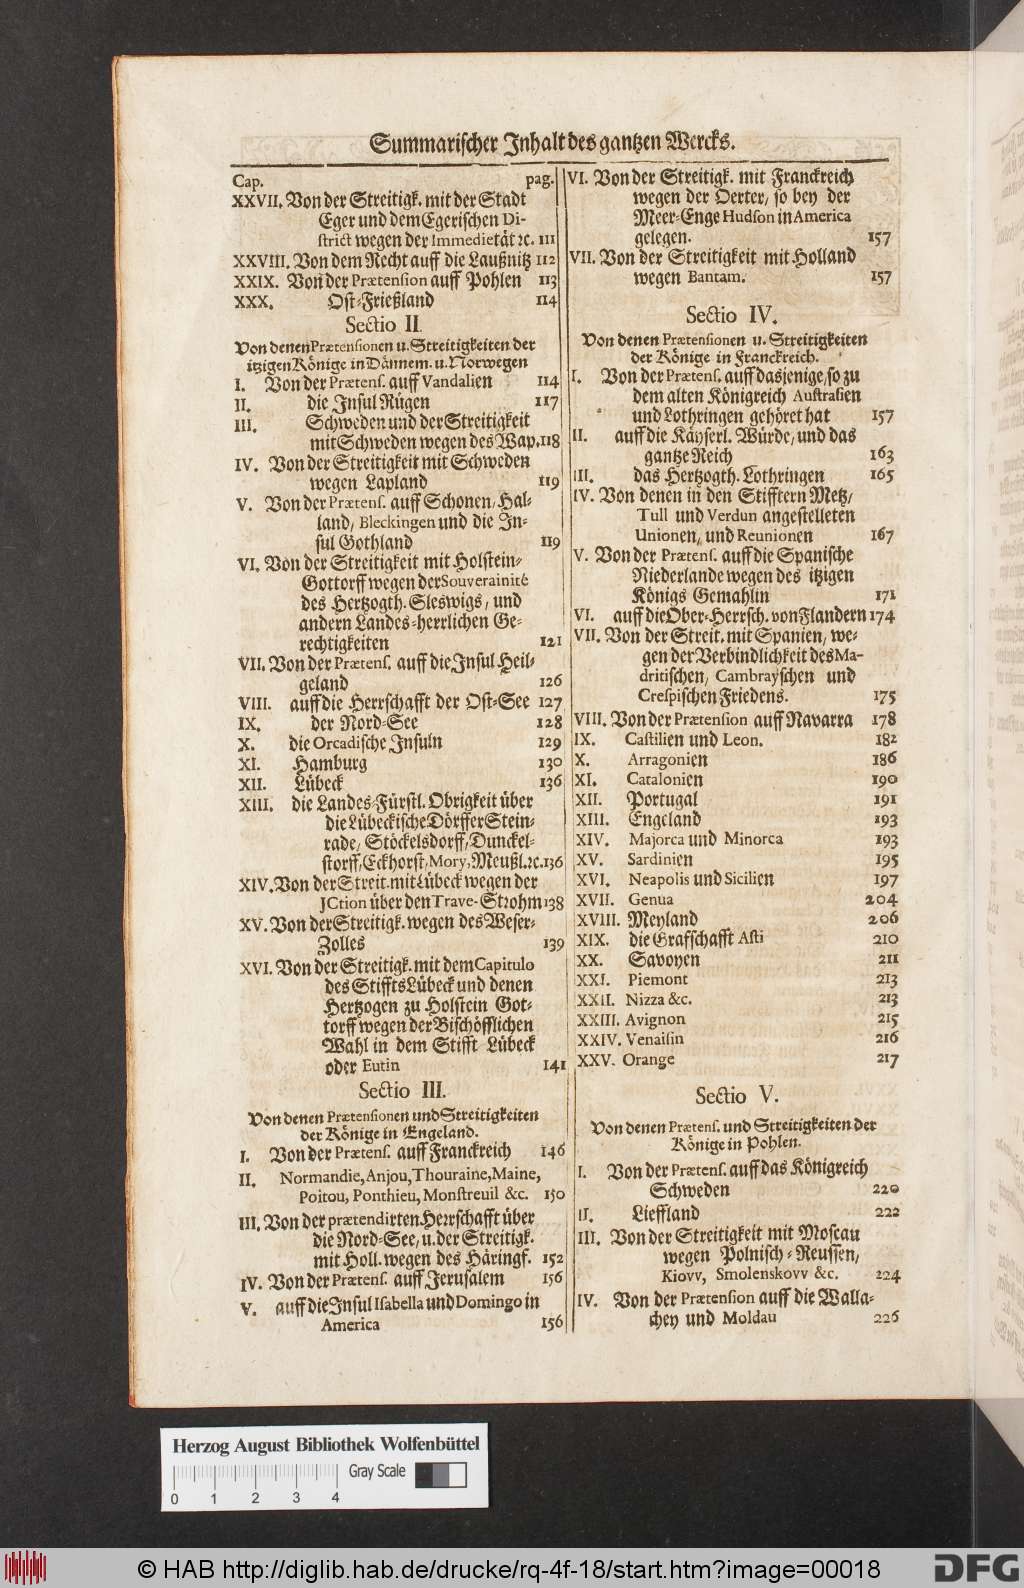 Summarischer Inhalt des gantzen Wercks.
Cap. pag.
XXVII. Von der Streitigk. mit der Stadt
Eger und dem Egerischen Di-
strict wegen der Immedietät ꝛc. 111
XXVIII. Von dem Recht auff die Laußnitz 112
XXIX. Von der Prætension auff Pohlen 113
XXX. Ost-Frießland 114
Sectio II.
Von denen Prætensionen u. Streitigkeiten der
itzigen Könige in Dännem. u. Norwegen
I. Von der Prætens. auff Vandalien 114
II. die Insul Rügen 117
III. Schweden und der Streitigkeit
mit Schweden wegen des Wap. 118
IV. Von der Streitigkeit mit Schweden
wegen Lapland 119
V. Von der Prætens. auff Schonen, Hal-
land, Bleckingen und die In-
sul Gothland 119
VI. Von der Streitigkeit mit Holstein-
Gottorff wegen der Souverainité
des Hertzogth. Sleswigs, und
andern Landes-herrlichen Ge-
rechtigkeiten 121
VII. Von der Prætens. auff die Insul Heil-
geland 126
VIII. auff die Herrschafft der Ost-See 127
IX. der Nord-See 128
X. die Orcadische Insuln 129
XI. Hamburg 130
XII. Lübeck 136
XIII. die Landes-Fürstl. Obrigkeit über
die Lübeckische Dörffer Stein-
rade, Stöckelsdorff, Dunckel-
storff, Eckhorst, Mory, Meußl. ꝛc. 136
XIV. Von der Streit. mit Lübeck wegen der
JCtion über den Trave-Strohm 138
XV. Von der Streitigk. wegen des Weser-
Zolles 139
XVI. Von der Streitigk. mit dem Capitulo
des Stiffts Lübeck und denen
Hertzogen zu Holstein Got-
torff wegen der Bischöfflichen
Wahl in dem Stifft Lübeck
oder Eutin 141
Sectio III.
Von denen Prætensionen und Streitigkeiten
der Könige in Engeland.
I. Von der Prætens. auff Franckreich 146
II. Normandie, Anjou, Thouraine, Maine,
Poitou, Ponthieu, Monstreuil &c. 150
III. Von der prætendirten Herrschafft über
die Nord-See, u. der Streitigk.
mit Holl. wegen des Häringf. 152
IV. Von der Prætens. auff Jerusalem 156
V. auff die Insul Isabella und Domingo in
America 156
VI. Von der Streitigk. mit Franckreich
wegen der Oerter, so bey der
Meer-Enge Hudson in America
gelegen. 157
VII. Von der Streitigkeit mit Holland
wegen Bantam. 157
Sectio IV.
Von denen Prætensionen u. Streitigkeiten
der Könige in Franckreich.
I. Von der Prætens. auff dasjenige, so zu
dem alten Königreich Austrasien
und Lothringen gehöret hat 157
II. auff die Käyserl. Würde, und das
gantze Reich 163
III. das Hertzogth. Lothringen 165
IV. Von denen in den Stifftern Metz,
Tull und Verdun angestelleten
Unionen, und Reunionen 167
V. Von der Prætens. auff die Spanische
Niederlande wegen des itzigen
Königs Gemahlin 171
VI. auff die Ober-Herrsch. von Flandern 174
VII. Von der Streit. mit Spanien, we-
gen der Verbindlichkeit des Ma-
dritischen, Cambrayschen und
Crespischen Friedens. 175
VIII. Von der Prætension auff Navarra 178
IX. Castilien und Leon. 182
X. Arragonien 186
XI. Catalonien 190
XII. Portugal 191
XIII. Engeland 193
XIV. Majorca und Minorca 193
XV. Sardinien 195
XVI. Neapolis und Sicilien 197
XVII. Genua 204
XVIII. Meyland 206
XIX. die Grafschafft Asti 210
XX. Savoyen 211
XXI. Piemont 213
XXII. Nizza &c. 213
XXIII. Avignon 215
XXIV. Venaisin 216
XXV. Orange 217
Sectio V.
Von denen Prætens. und Streitigkeiten der
Könige in Pohlen.
I. Von der Prætens. auff das Königreich
Schweden 220
II. Lieffland 222
III. Von der Streitigkeit mit Moscau
wegen Polnisch-Reussen,
Kiovv, Smolenskovv &c. 224
IV. Von der Prætension auff die Walla-
chey und Moldau 226
Herzog August Bibliothek Wolfenbüttel
Gray Scale
0 1 2 3 4
© HAB http://diglib.hab.de/drucke/rq-4f-18/start.htm?image=00018
DFG